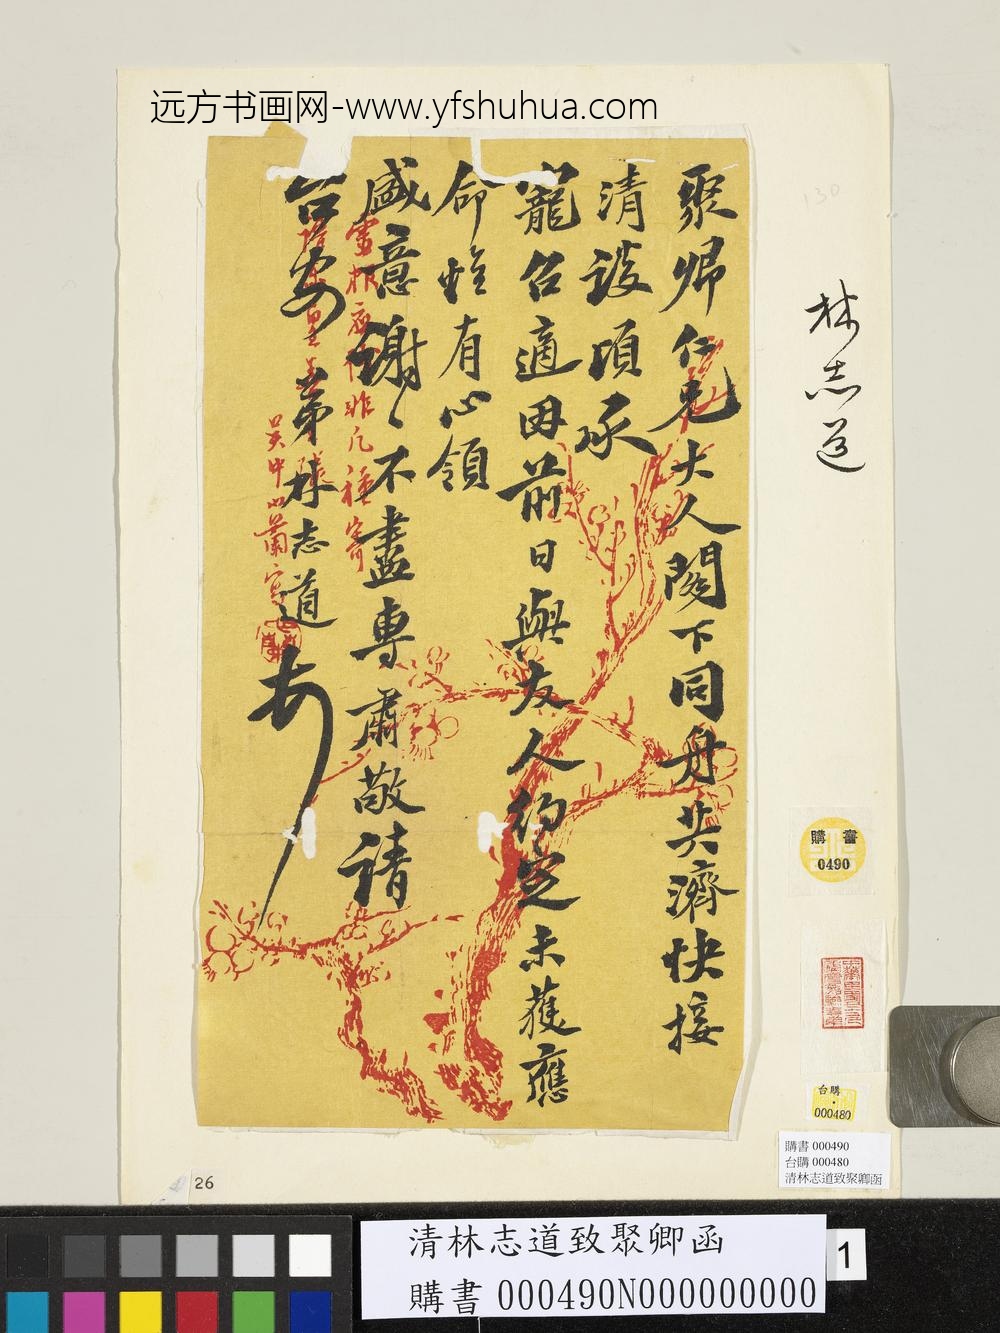 远方书画网-www.yfshuhua.com
聚卿仁兄大人閣下同舟共濟快接
清談頃承
寵召適因前日與友人約定未獲應
命惟有心領
盛意謝〻不盡專肅敬請
台安 弟林志道
雪根 非凡種寄
吳中 蕭
林志道
130
購書
0490
台購
000480
購書 000490
台購 000480
清林志道致聚卿函
26
清林志道致聚卿函
購書 000490N000000000
1